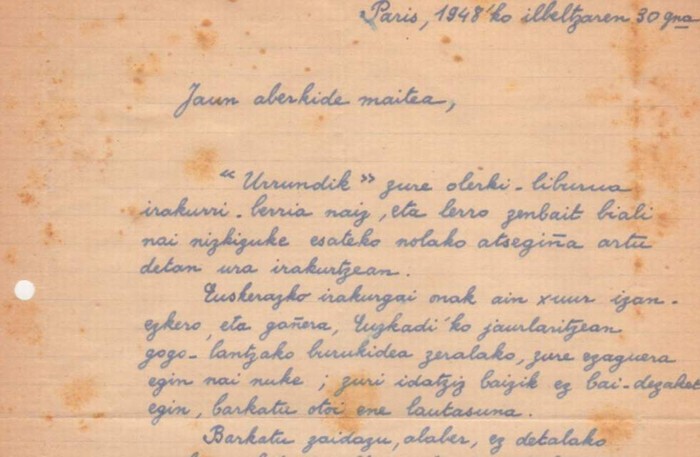 Paris, 1948'ko ilbeltzaren 30 gna
Jaun aberkide maitea,
"Urrundik" zure olerki-liburua
irakurri-berria naiz, eta lerro zenbait biali
nai nizkizuke esateko nolako atsegiña artu
detan ura irakurtzean.
Euskerazko irakurgai onak ain xuur izan-
ezkero, eta gañera, Euzkadi'ko jaurlaritzean
gogo-lantzako burukidea zeralako, zure ezaguera
egin nai nuke; zuri idatziz baizik ez bai-dezaket
egin, barkatu otoi ene lautasuna.
Barkatu zaidazu, alaber, ez detalako